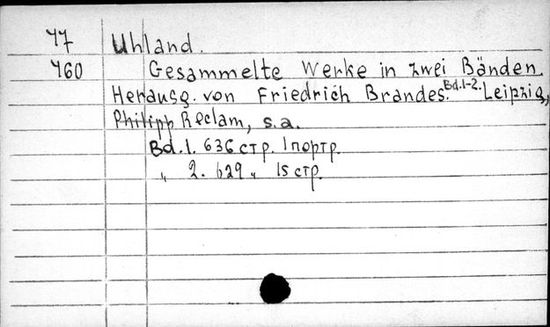 77 Uhland.
460 Gesammelte Werke in zwei Bänden.
Herausg. von Friedrich Brandes. Bd.1-2. Leipzig,
Philipp Reclam, s.a.
Bd.1. 636 стр. 1 портр.
„ 2. 629 „ 15 стр.